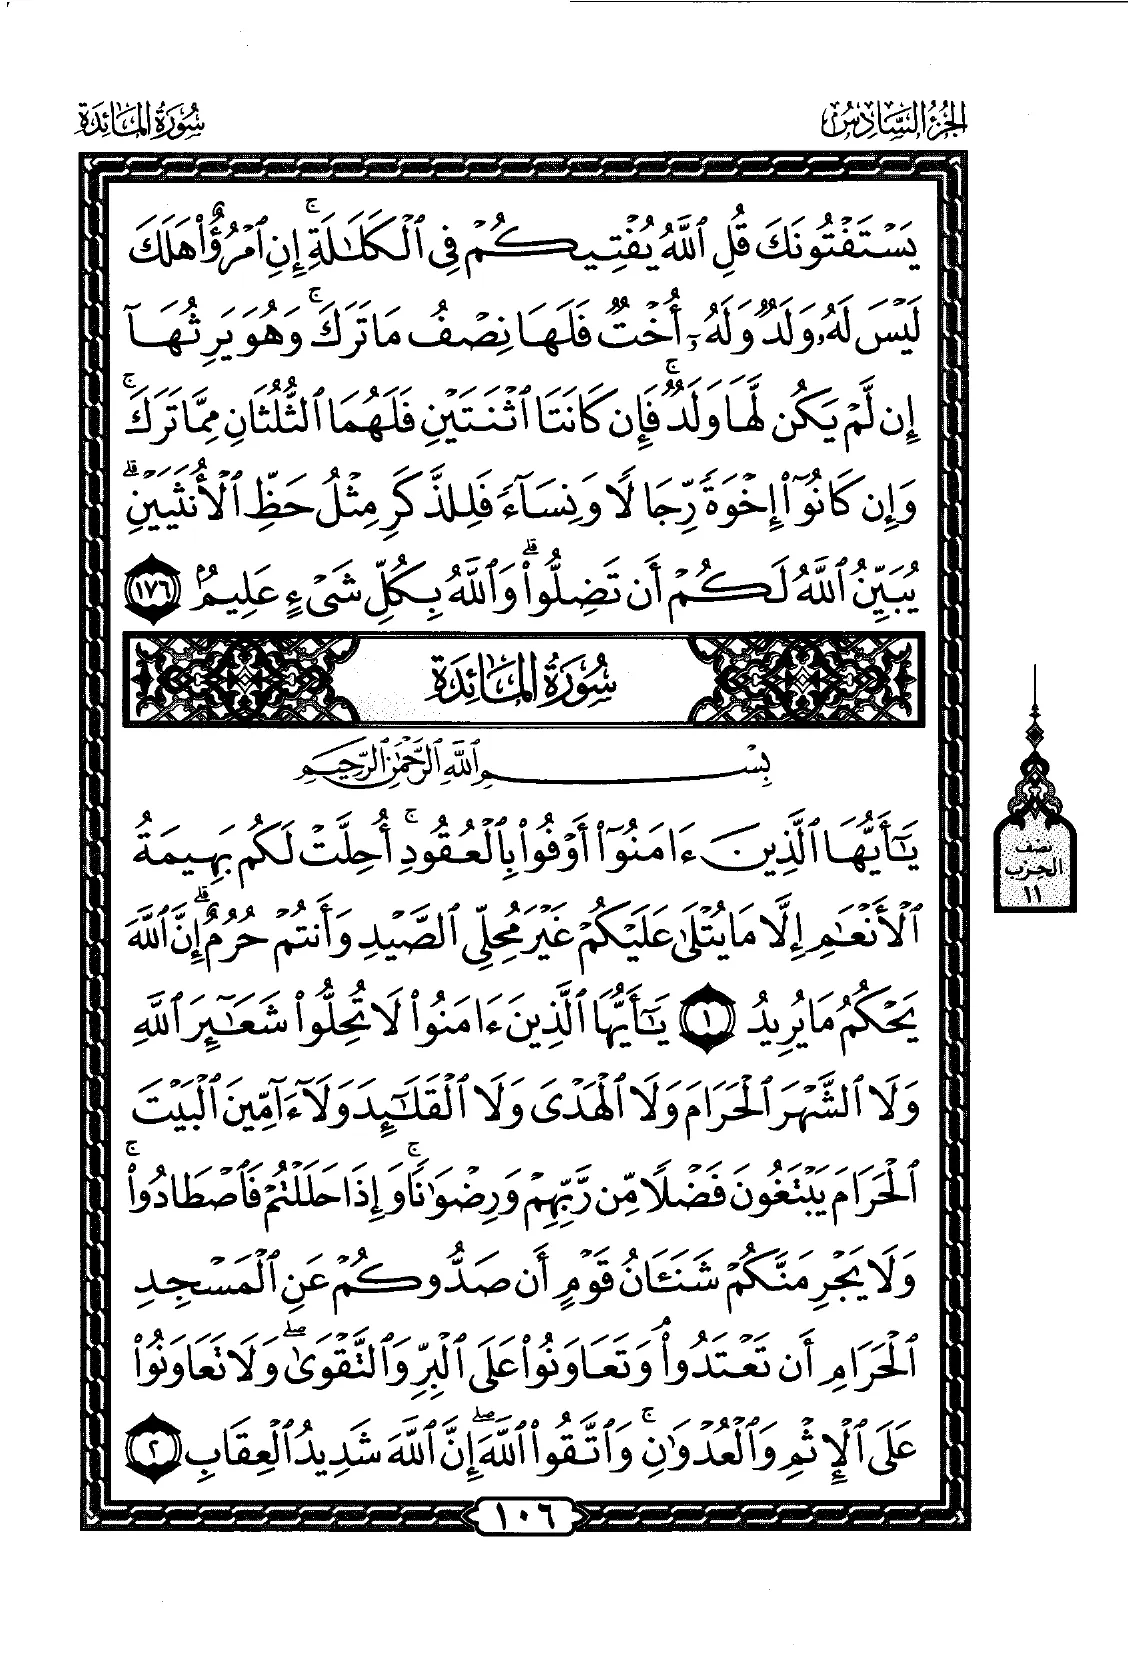 الجزء السادس
سورة المائدة
يَسْتَفْتُونَكَ قُلِ ٱللَّهُ يُفْتِيكُمْ فِى ٱلْكَلَـٰلَةِ ۚ إِنِ ٱمْرُؤٌا۟ هَلَكَ
لَيْسَ لَهُۥ وَلَدٌ وَلَهُۥٓ أُخْتٌ فَلَهَا نِصْفُ مَا تَرَكَ ۚ وَهُوَ يَرِثُهَآ
إِن لَّمْ يَكُن لَّهَا وَلَدٌ ۚ فَإِن كَانَتَا ٱثْنَتَيْنِ فَلَهُمَا ٱلثُّلُثَانِ مِمَّا تَرَكَ ۚ
وَإِن كَانُوٓا۟ إِخْوَةً رِّجَالًا وَنِسَآءً فَلِلذَّكَرِ مِثْلُ حَظِّ ٱلْأُنثَيَيْنِ ۗ
يُبَيِّنُ ٱللَّهُ لَكُمْ أَن تَضِلُّوا۟ ۗ وَٱللَّهُ بِكُلِّ شَىْءٍ عَلِيمٌۢ ١٧٦
سُورَةُ المَائِدَةِ
بِسْمِ ٱللَّهِ ٱلرَّحْمَـٰنِ ٱلرَّحِيمِ
يَـٰٓأَيُّهَا ٱلَّذِينَ ءَامَنُوٓا۟ أَوْفُوا۟ بِٱلْعُقُودِ ۚ أُحِلَّتْ لَكُم بَهِيمَةُ
ٱلْأَنْعَـٰمِ إِلَّا مَا يُتْلَىٰ عَلَيْكُمْ غَيْرَ مُحِلِّى ٱلصَّيْدِ وَأَنتُمْ حُرُمٌ ۗ إِنَّ ٱللَّهَ
يَحْكُمُ مَا يُرِيدُ ١ يَـٰٓأَيُّهَا ٱلَّذِينَ ءَامَنُوا۟ لَا تُحِلُّوا۟ شَعَـٰٓئِرَ ٱللَّهِ
وَلَا ٱلشَّهْرَ ٱلْحَرَامَ وَلَا ٱلْهَدْىَ وَلَا ٱلْقَلَـٰٓئِدَ وَلَآ ءَآمِّينَ ٱلْبَيْتَ
ٱلْحَرَامَ يَبْتَغُونَ فَضْلًا مِّن رَّبِّهِمْ وَرِضْوَٰنًا ۚ وَإِذَا حَلَلْتُمْ فَٱصْطَادُوا۟ ۚ
وَلَا يَجْرِمَنَّكُمْ شَنَـَٔانُ قَوْمٍ أَن صَدُّوكُمْ عَنِ ٱلْمَسْجِدِ
ٱلْحَرَامِ أَن تَعْتَدُوا۟ ۘ وَتَعَاوَنُوا۟ عَلَى ٱلْبِرِّ وَٱلتَّقْوَىٰ ۖ وَلَا تَعَاوَنُوا۟
عَلَى ٱلْإِثْمِ وَٱلْعُدْوَٰنِ ۚ وَٱتَّقُوا۟ ٱللَّهَ ۖ إِنَّ ٱللَّهَ شَدِيدُ ٱلْعِقَابِ ٢
نصف
الحزب
١١
١٠٦